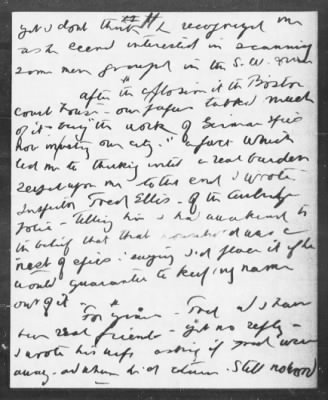 yet I dont think he recognized me
as he seemed interested in scanning
some men grouped in the S.W. 
after the explosion at the Boston
Court House - our papers talked much
of it - being "the work of German spies
now infesting our city." a fact which
led me to thinking until a real burden
rested upon me - to this end I wrote
Inspector Fred Ellis - of the Cambridge
Police - telling him I had awakened to
the belief that that was a
nest of spies : saying I'd prove it if he
would guarantee to keep my name
out of it.
For years - Fred and I have
been real friends - yet no reply -
I wrote his wife asking if Fred were
away - and when he'd return. Still no word